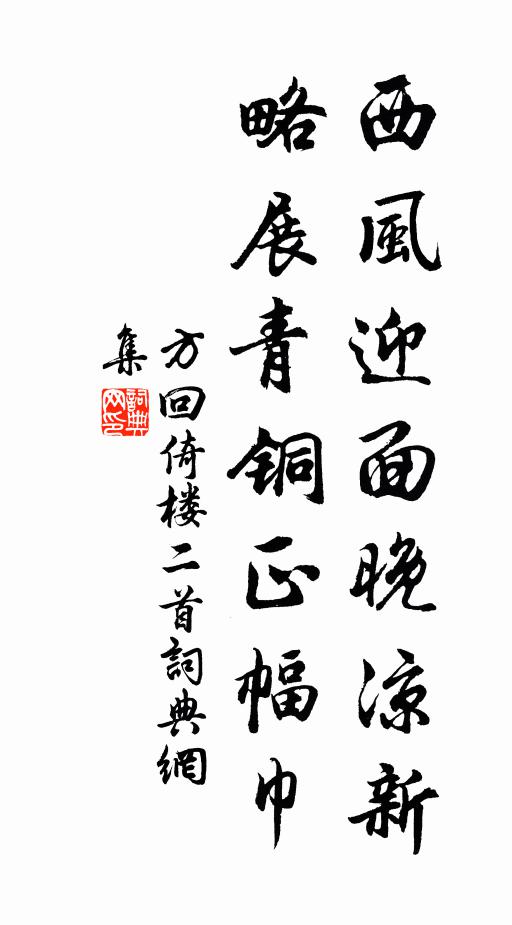 西風迎面晚涼新
略展青铜正幅巾
方回倚楼二首詞典網
集
詞典网印